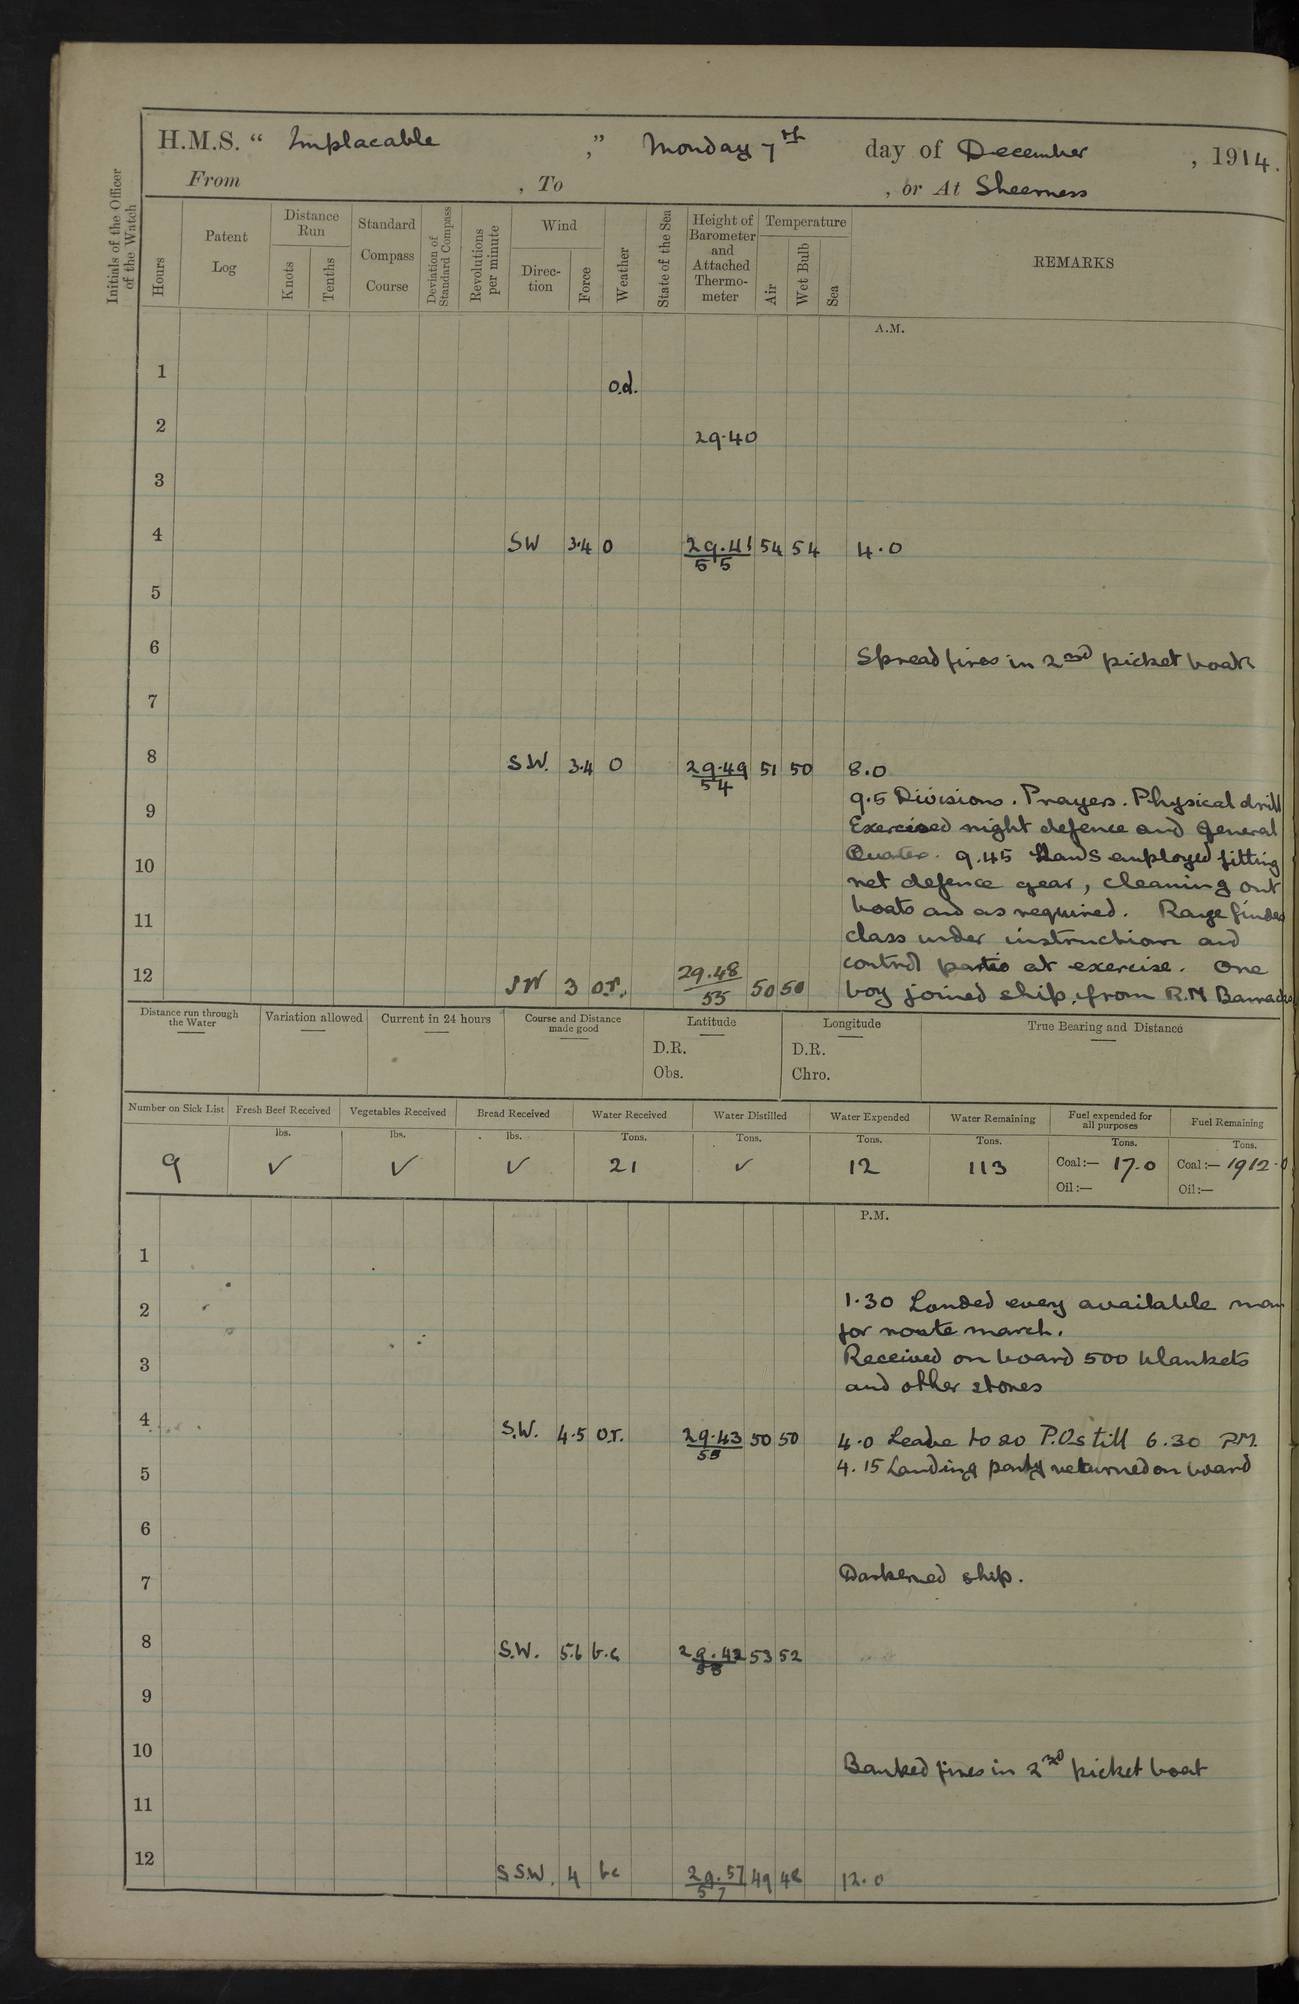 H.M.S. “ Implacable ,” Monday 7th day of December , 1914.
From , To , or At Sheerness
Initials of the Officer of the Watch
Hours
Patent Log
Distance Run
Knots
Tenths
Standard Compass Course
Deviation of Standard Compass
Revolutions per minute
Wind
Direc- tion
Force
Weather
State of the Sea
Height of Barometer and Attached Thermo- meter
Temperature
Air
Wet Bulb
Sea
REMARKS
A.M.
1 o.d.
2 29.40
3
4 SW 3.4 0 29.41 55 54 54 4.0
5
6 Spread fires in 2nd picket boat
7
8 S.W. 3.4 0 29.49 54 51 50 8.0
9.5 Divisions. Prayers. Physical drill
9 Exercised night defence and General
Quarters. 9.45 Hands employed fitting
10 net defence gear, cleaning out
boats and as required. Range finder
11 class under instruction and
control parties at exercise. One
12 SW 3 o.r. 29.48 55 50 50 boy joined ship, from R.M Barracks
Distance run through the Water
Variation allowed
Current in 24 hours
Course and Distance made good
Latitude
D.R.
Obs.
Longitude
D.R.
Chro.
True Bearing and Distance
Number on Sick List
Fresh Beef Received
Vegetables Received
Bread Received
Water Received
Water Distilled
Water Expended
Water Remaining
Fuel expended for all purposes
Fuel Remaining
lbs. lbs. lbs. Tons. Tons. Tons. Tons. Tons. Tons.
9 ✓ ✓ ✓ 21 ✓ 12 113 Coal:— 17.0 Coal:— 1912.0
Oil:— Oil:—
P.M.
1
2 1.30 Landed every available man
for route march.
3 Received on board 500 blankets
and other stores
4 S.W. 4.5 o.r. 29.43 55 50 50 4.0 Leave to 20 P.Os till 6.30 P.M.
5 4.15 Landing party returned on board
6
7 Darkened ship.
8 S.W. 5.6 b.c 29.42 53 52
9
10 Banked fires in 2nd picket boat
11
12 S.S.W. 4 bc 29.57 57 49 48 12.0